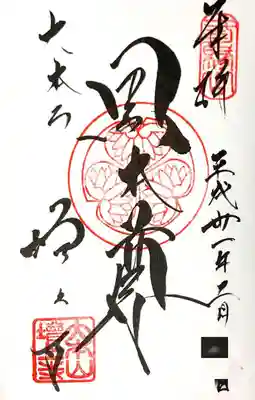 奉拝
平成 一年 月 日
黒本尊
大本山
増上寺